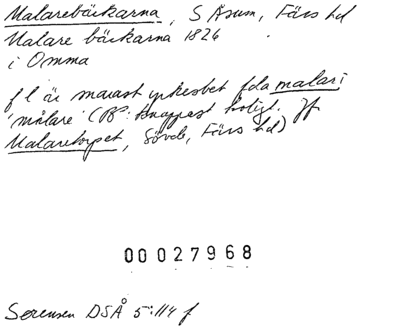 Malarebäckarna, S Åsum, Färs hd
Malare bäckarna 1826
i Omma
fl är manast yrkesbet fda malari
'målare' (JB: knappast troligt. Jf
Malaretorpet, Sövde, Färs hd)
00027968
Sørensen DSÅ 5:114 f